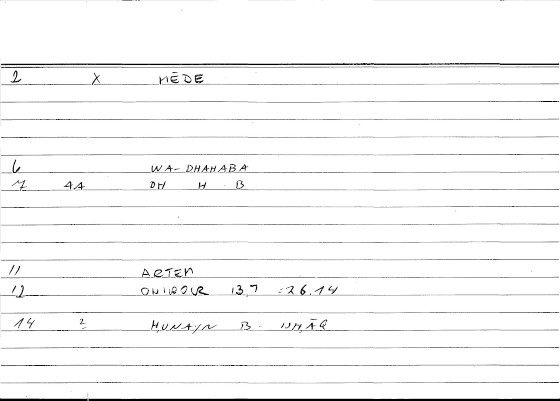 2 X MĒDE
6 WA-DHAHABA
7 4A DH H B
11 ARTEM
12 ONIROCR 13,7 :26.14
14 2 ḤUNAYN B. ISḤĀQ